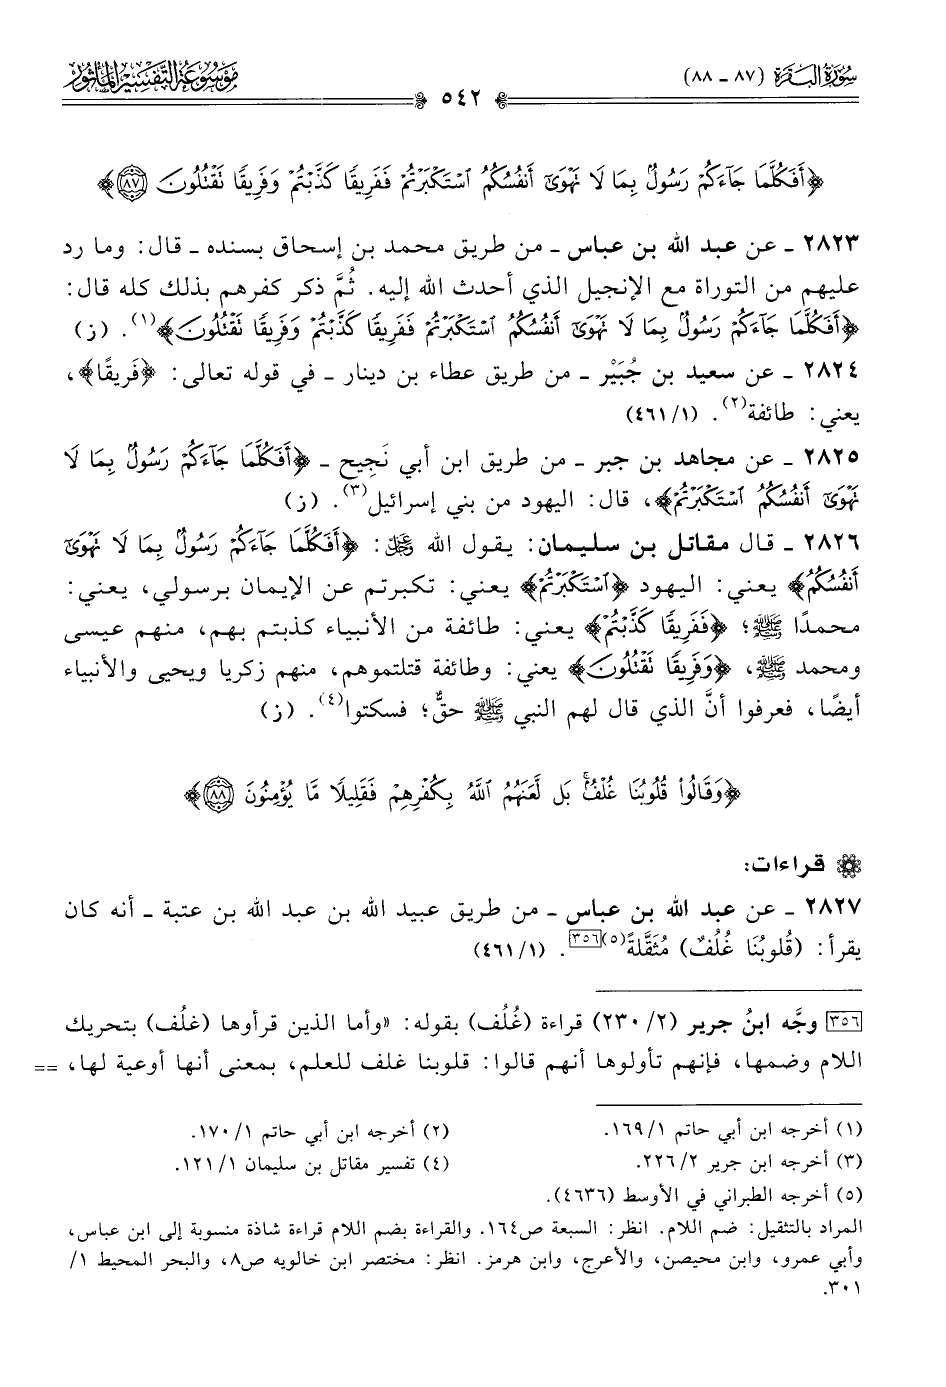 سورة البقرة (٨٧ - ٨٨)
موسوعة التفسير المأثور
٥٤٢
﴿أَفَكُلَّمَا جَآءَكُمْ رَسُولٌۢ بِمَا لَا تَهْوَىٰٓ أَنفُسُكُمُ ٱسْتَكْبَرْتُمْ فَفَرِيقًا كَذَّبْتُمْ وَفَرِيقًا تَقْتُلُونَ ٨٧﴾
٢٨٢٣ - عن عبد الله بن عباس - من طريق محمد بن إسحاق بسنده - قال: وما رد
عليهم من التوراة مع الإنجيل الذي أحدث الله إليه. ثُمَّ ذكر كفرهم بذلك كله قال:
﴿أَفَكُلَّمَا جَآءَكُمْ رَسُولٌۢ بِمَا لَا تَهْوَىٰٓ أَنفُسُكُمُ ٱسْتَكْبَرْتُمْ فَفَرِيقًا كَذَّبْتُمْ وَفَرِيقًا تَقْتُلُونَ﴾(١). (ز)
٢٨٢٤ - عن سعيد بن جُبَيْر - من طريق عطاء بن دينار - في قوله تعالى: ﴿فَرِيقًا﴾،
يعني: طائفة(٢). (٤٦١/١)
٢٨٢٥ - عن مجاهد بن جبر - من طريق ابن أبي نَجِيح - ﴿أَفَكُلَّمَا جَآءَكُمْ رَسُولٌۢ بِمَا لَا
تَهْوَىٰٓ أَنفُسُكُمُ ٱسْتَكْبَرْتُمْ﴾، قال: اليهود من بني إسرائيل(٣). (ز)
٢٨٢٦ - قال مقاتل بن سليمان: يقول الله ﷿: ﴿أَفَكُلَّمَا جَآءَكُمْ رَسُولٌۢ بِمَا لَا تَهْوَىٰٓ
أَنفُسُكُمُ﴾ يعني: اليهود ﴿ٱسْتَكْبَرْتُمْ﴾ يعني: تكبرتم عن الإيمان برسولي، يعني:
محمدًا ﷺ؛ ﴿فَفَرِيقًا كَذَّبْتُمْ﴾ يعني: طائفة من الأنبياء كذبتم بهم، منهم عيسى
ومحمد ﷺ، ﴿وَفَرِيقًا تَقْتُلُونَ﴾ يعني: وطائفة قتلتموهم، منهم زكريا ويحيى والأنبياء
أيضًا، فعرفوا أنَّ الذي قال لهم النبي ﷺ حقٌّ؛ فسكتوا(٤). (ز)
﴿وَقَالُوا۟ قُلُوبُنَا غُلْفٌۢ ۚ بَل لَّعَنَهُمُ ٱللَّهُ بِكُفْرِهِمْ فَقَلِيلًا مَّا يُؤْمِنُونَ ٨٨﴾
قراءات:
٢٨٢٧ - عن عبد الله بن عباس - من طريق عبيد الله بن عبد الله بن عتبة - أنه كان
يقرأ: (قُلوبُنَا غُلُفٌ) مُثَقَّلةً(٥)[٣٥٦]. (٤٦١/١)
[٣٥٦] وجَّه ابنُ جرير (٢/ ٢٣٠) قراءة (غُلُف) بقوله: «وأما الذين قرأوها (غلُف) بتحريك
اللام وضمها، فإنهم تأولوها أنهم قالوا: قلوبنا غلف للعلم، بمعنى أنها أوعية لها، ==
(١) أخرجه ابن أبي حاتم ١/ ١٦٩.
(٢) أخرجه ابن أبي حاتم ١/ ١٧٠.
(٣) أخرجه ابن جرير ٢/ ٢٢٦.
(٤) تفسير مقاتل بن سليمان ١/ ١٢١.
(٥) أخرجه الطبراني في الأوسط (٤٦٣٦).
المراد بالتثقيل: ضم اللام. انظر: السبعة ص١٦٤. والقراءة بضم اللام قراءة شاذة منسوبة إلى ابن عباس،
وأبي عمرو، وابن محيصن، والأعرج، وابن هرمز. انظر: مختصر ابن خالويه ص٨، والبحر المحيط ١/
٣٠١.